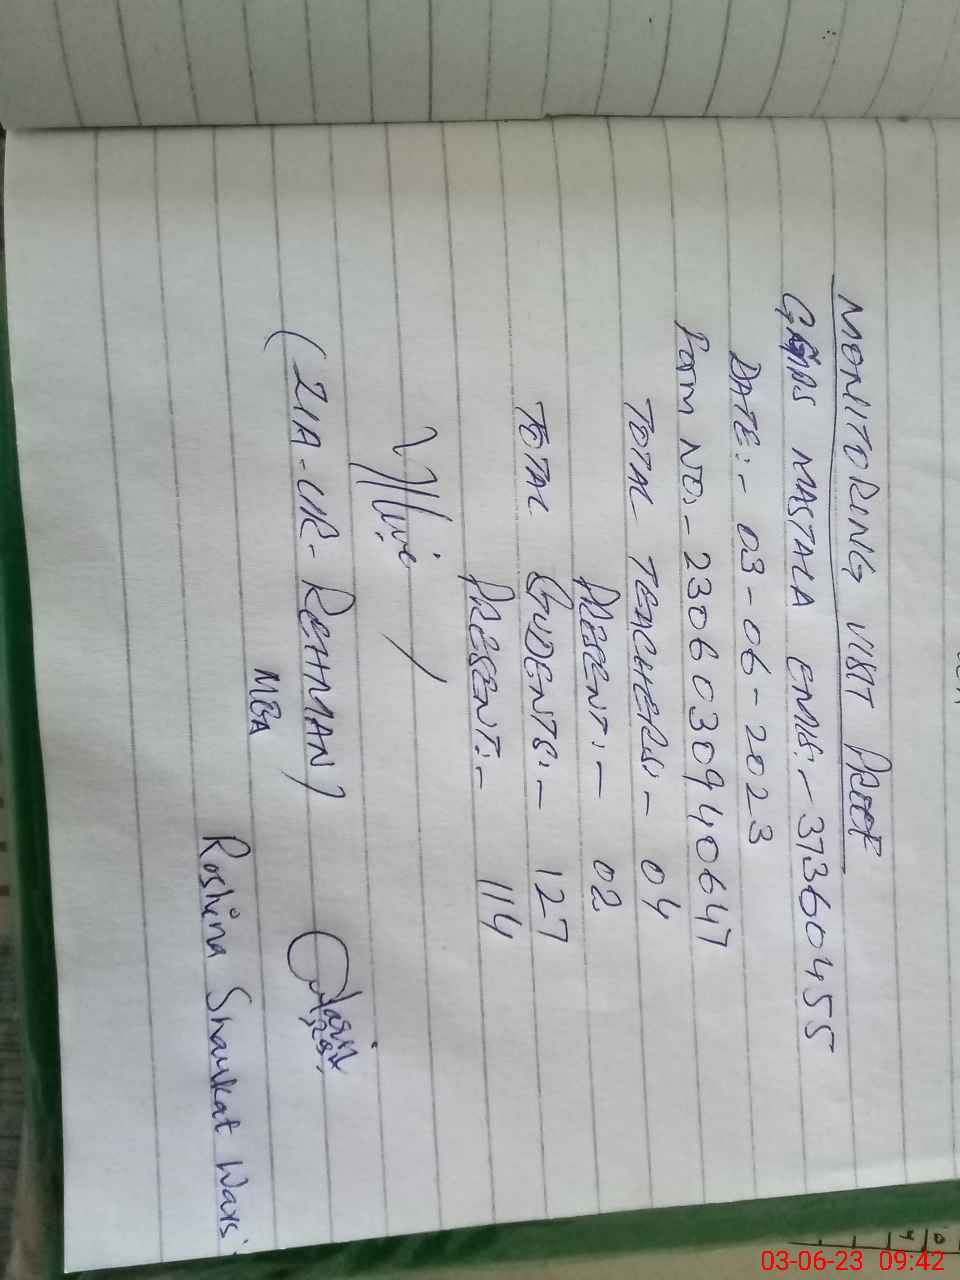 MONITORING VISIT PROOF
MASTALA EMIS:- 37360455
DATE:- 03-06-2023
FORM NO:- 230603094064
TOTAL TEACHERS:- 04
PRESENT:- 02
TOTAL STUDENTS:- 127
PRESENT:- 114
(ZIA-UR-REHMAN)
MBA
Roshina Shaukat Warsi
03-06-23 09:42